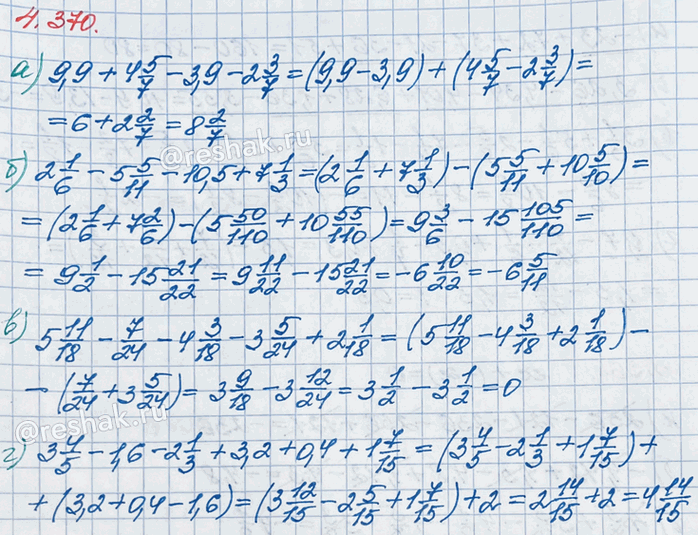 4.370.
а) 9,9 + 4 5/7 − 3,9 − 2 3/7 = (9,9 − 3,9) + (4 5/7 − 2 3/7) =
= 6 + 2 2/7 = 8 2/7
@reshak.ru
б) 2 1/6 − 5 5/11 − 10,5 + 7 1/3 = (2 1/6 + 7 1/3) − (5 5/11 + 10 5/10) =
= (2 1/6 + 7 2/6) − (5 50/110 + 10 55/110) = 9 3/6 − 15 105/110 =
= 9 1/2 − 15 21/22 = 9 11/22 − 15 21/22 = −6 10/22 = −6 5/11
в) 5 11/18 − 7/24 − 4 3/18 − 3 5/24 + 2 1/18 = (5 11/18 − 4 3/18 + 2 1/18) −
− (7/24 + 3 5/24) = 3 9/18 − 3 12/24 = 3 1/2 − 3 1/2 = 0
@reshak.ru
г) 3 4/5 − 1,6 − 2 1/3 + 3,2 + 0,4 + 1 7/15 = (3 4/5 − 2 1/3 + 1 7/15) +
+ (3,2 + 0,4 − 1,6) = (3 12/15 − 2 5/15 + 1 7/15) + 2 = 2 14/15 + 2 = 4 14/15